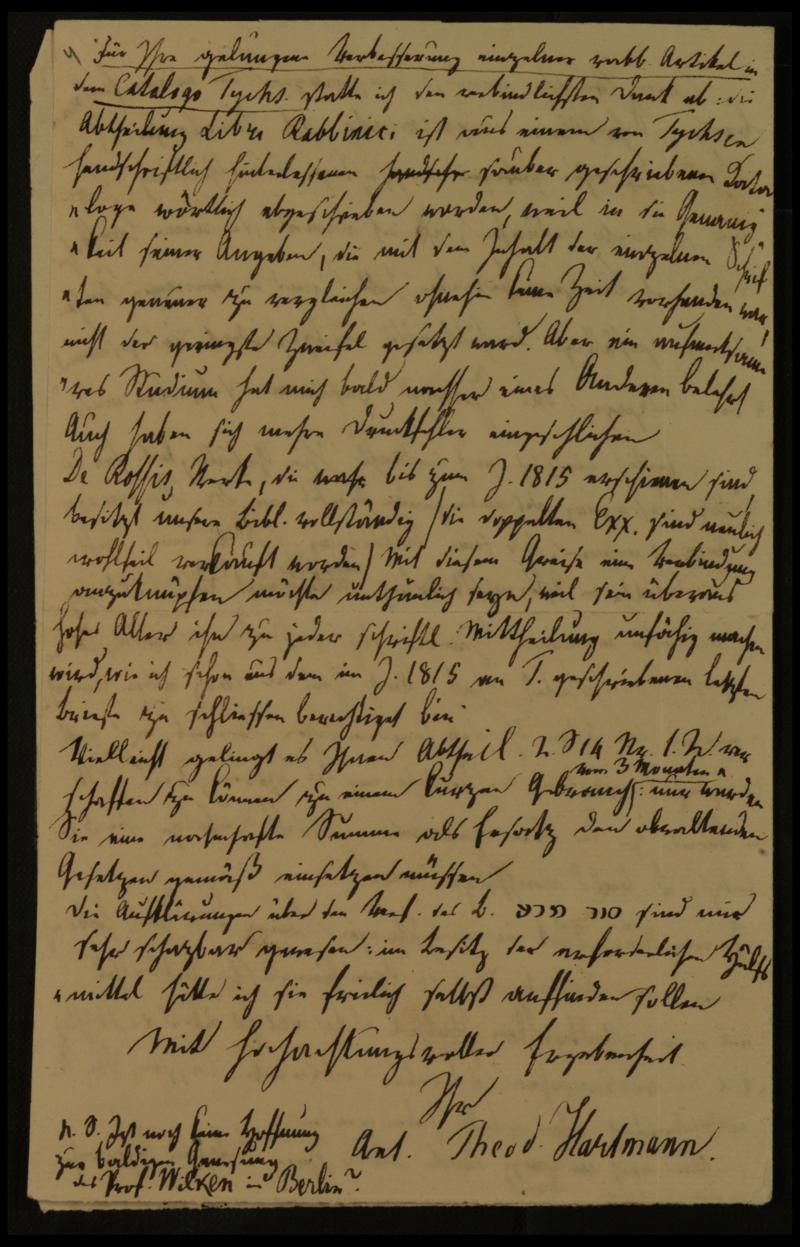 Für Ihre gelungene Verbesserung einzelner rabb. Artikel in
dem Catalogo Tychs. statte ich den verbindlichsten Dank ab: die
Abtheilung Libri Rabbinici ist aus einem von Tychsen
handschriftlich hinterlassenen sauber geschriebenen Cata
=loge wörtlich abgeschrieben worden, weil in die Genauig
=keit seiner Angaben, die mit dem Inhalt der einzelnen Schrif
=ten genauer zu vergleichen ohnehin keine Zeit vorhanden war,
nicht der geringste Zweifel gesetzt ward. Aber ein aufmerksame
=res Studium hat mich bald nachher eines Anderen belehrt
Auch haben sich mehre Druckfehler eingeschlichen
De Rossis Werke, die bis zum J. 1815 erschienen sind,
besitzt unsere Bibl. vollständig (die doppelten Exx. sind neulich
wohlfeil verkauft worden) Mit diesem Greise eine Verbindung
anzuknüpfen möchte unthunlich seyn, weil sein überaus
hohes Alter ihn zu jeder schriftl. Mittheilung unfähig machen
wird, wie ich schon aus dem im J. 1815 an T. geschriebenen letzten
Briefe zu schliessen berechtiget bin.
Vielleicht gelingt es Ihnen Abtheil. 2. S 14 Nr. 1. 2. ver
schaffen zu können zu einem kurzen Gebrauch von 3 Monaten: nur würden
Sie eine nahmhafte Summe als Ersatz den obwaltenden
Gesetzen gemäß einsetzen müssen
Die Aufklärungen über den Verf. des B. sind mir
sehr schazbar gewesen: im Besitz der erforderlichen Hülfs
=mittel hätte ich sie freilich selbst auffinden sollen
Mit hochachtungsvoller Ergebenheit
Ihr
Ant. Theod. Hartmann.
N. S. Ist noch keine Hoffnung
zur baldigen Genesung
des Prof. Wilken in Berlin?